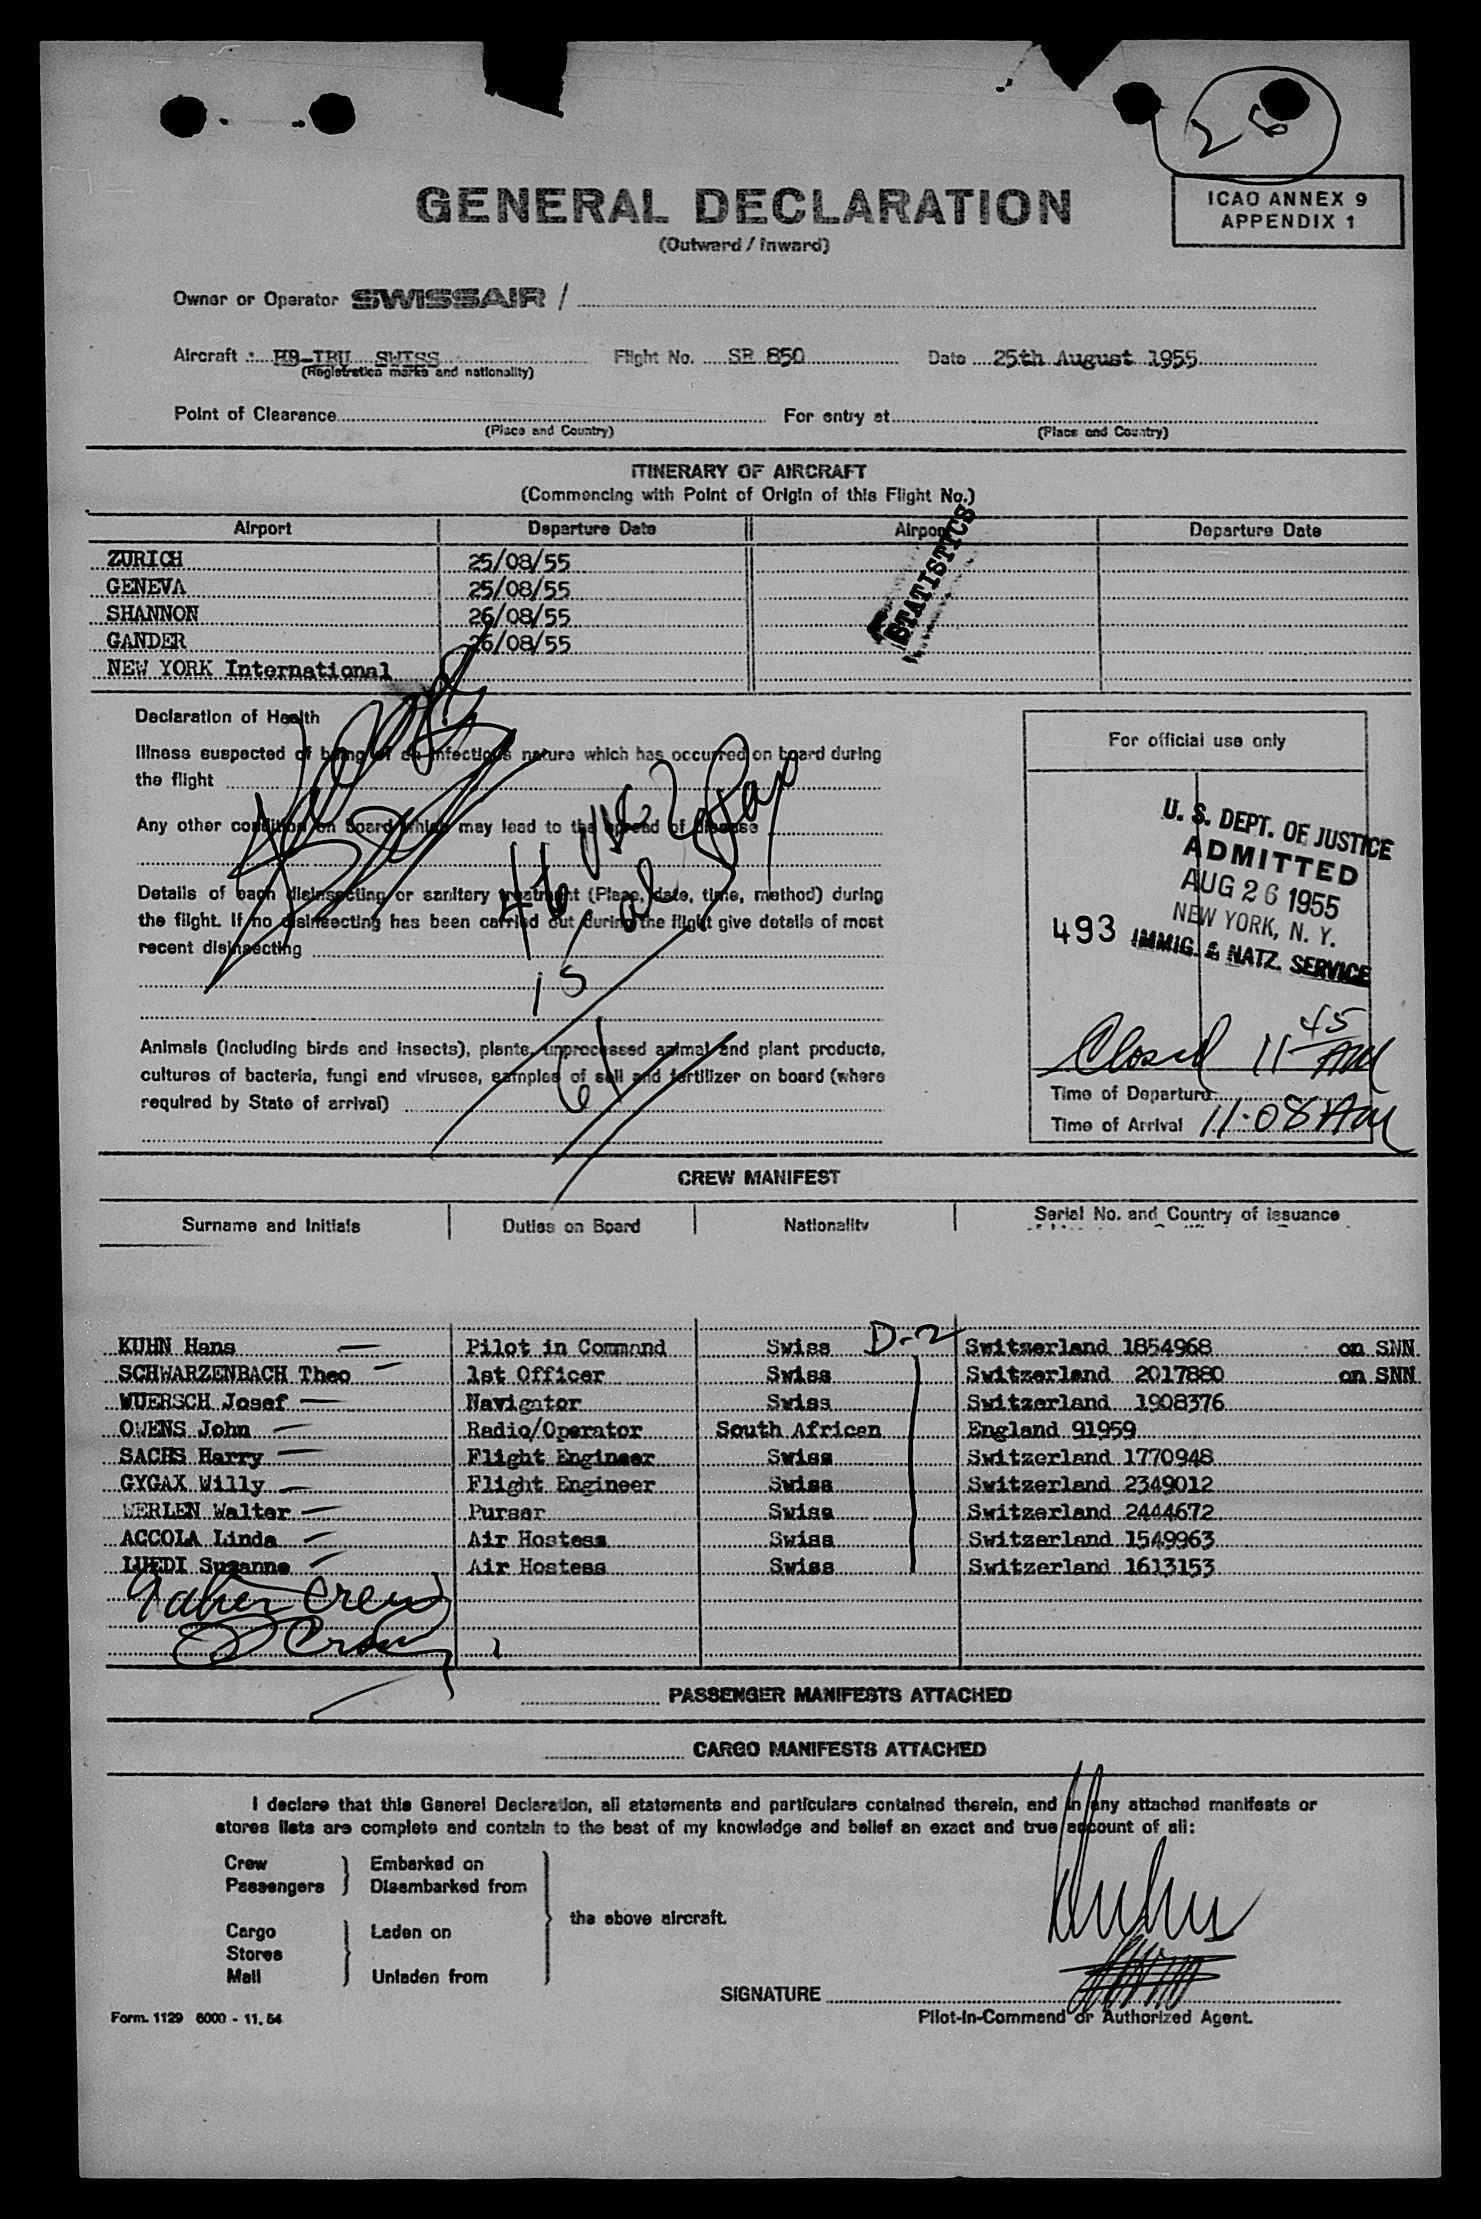 26
GENERAL DECLARATION
(Outward / Inward)
ICAO ANNEX 9
APPENDIX 1
Owner or Operator SWISSAIR /
Aircraft HB-IBU SWISS Flight No. SR 850 Date 25th August 1955
(Registration marks and nationality)
Point of Clearance For entry at
(Place and Country) (Place and Country)
ITINERARY OF AIRCRAFT
(Commencing with Point of Origin of this Flight No.)
Airport Departure Date Airport Departure Date
STATISTICS
ZURICH 25/08/55
GENEVA 25/08/55
SHANNON 26/08/55
GANDER 26/08/55
NEW YORK International
Declaration of Health
Illness suspected of being of an infectious nature which has occurred on board during
the flight
Any other condition on board which may lead to the spread of disease
Details of each disinsecting or sanitary treatment (Place, date, time, method) during
the flight. If no disinsecting has been carried out during the flight give details of most
recent disinsecting
46 USC
15
61
Pax
Animals (including birds and insects), plants, unprocessed animal and plant products,
cultures of bacteria, fungi and viruses, samples of soil and fertilizer on board (where
required by State of arrival)
For official use only
U. S. DEPT. OF JUSTICE
ADMITTED
AUG 26 1955
NEW YORK, N. Y.
493 IMMIG. & NATZ. SERVICE
Closed 11 45 AM
Time of Departure
Time of Arrival 11.08 AM
CREW MANIFEST
Surname and Initials Duties on Board Nationality Serial No. and Country of Issuance
D-2
KUHN Hans Pilot in Command Swiss Switzerland 1854968 on SNN
SCHWARZENBACH Theo 1st Officer Swiss Switzerland 2017880 on SNN
WUERSCH Josef Navigator Swiss Switzerland 1908376
OWENS John Radio/Operator South African England 91959
SACHS Harry Flight Engineer Swiss Switzerland 1770948
GYGAX Willy Flight Engineer Swiss Switzerland 2349012
WERLEN Walter Purser Swiss Switzerland 2444672
ACCOLA Linda Air Hostess Swiss Switzerland 1549963
LUEDI Suzanne Air Hostess Swiss Switzerland 1613153
crew
PASSENGER MANIFESTS ATTACHED
CARGO MANIFESTS ATTACHED
I declare that this General Declaration, all statements and particulars contained therein, and in any attached manifests or
stores lists are complete and contain to the best of my knowledge and belief an exact and true account of all:
Crew Embarked on
Passengers Disembarked from
the above aircraft.
Cargo Laden on
Stores
Mail Unladen from
SIGNATURE
Pilot-in-Command or Authorized Agent.
Form. 1129 6000 - 11.54